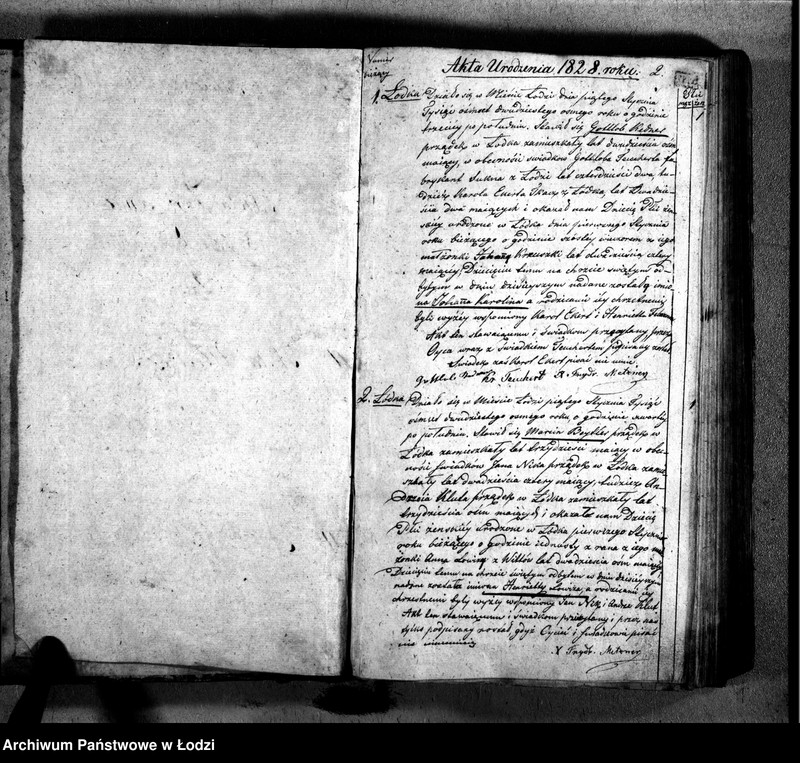 Numer
bieżący
Akta Urodzenia 1828. roku. 2.
Płci
męz. żen.
1. Łodka Działo się w Mieście Łodzi dnia piątego Stycznia
Tysiąc ośmset dwudziestego osmego roku o godzinie
trzeciey po południu. Stawił się Gottlob
przędek w Łodka zamieszkały lat dwadzieścia
maiący, w obecności świadków Gottloba Teucherta fa-
brykant Sukna z Łodzi lat czterdzieści dwa, tu-
dzież Karola Ekerta Tkacz z Łodka, lat Dwadzie-
ścia dwa maiących i okazał nam Dziecię Płci żen-
skiey urodzone w Łodka dnia pierwszego Stycznia
roku bieżącego o godzinie szóstey wieczorem z iego
małżonki lat dwadzieścia cztery
maiącey. Dziecięciu temu na chrzcie świętym od-
bytym w dniu dzisieyszym nadane zostało imie-
na Johanna Karolina a rodzicami iey chrzestnemi
byli wyżey wspomniony Karol Ekert i Henrietta
Akt ten stawaiącemu i świadkom przeczytany, przez
Oyca wraz z Świadkiem Teuchertem podpisany został
Świadek zaś Karol Ekert pisać nie umie.
Teuchert X. Frydr. Metzner
1
2. Łodka Działo się w Mieście Łodzi piątego Stycznia Tysiąc
ośmset dwudziestego osmego roku, o godzinie czwartey
po południu. Stawił się Marcin przędek w
Łodka zamieszkały lat trzydzieści maiący w obec-
ności świadków Jana przędek w Łodka zamie-
szkały lat dwadzieścia cztery maiący, tudzież An-
drzeia Kluta przędek w Łodka zamieszkały lat
trzydzieścia ośm maiących i okazał nam Dziecię
Płci żenskiey urodzone w Łodka pierwszego Stycznia
roku bieżącego o godzinie iednasty z rana z iego mał-
żonki Anna Lowiza z lat dwadzieścia osm maiącey
Dziecięciu temu na chrzcie świętym odbytym w dniu dzisieyszym
nadane zostało imiona Henrietta Lowiza, a rodzicami iey
chrzestnemi byly wyżey wspomniony Jan i Andrz. Klut
Akt ten stawaiącemu i świadkom przeczytany i przez nas
tylko podpisany został gdyż Oyciec i świadkowie pisać
nie umieią
X Frydr. Metzner
1
Archiwum Państwowe w Łodzi